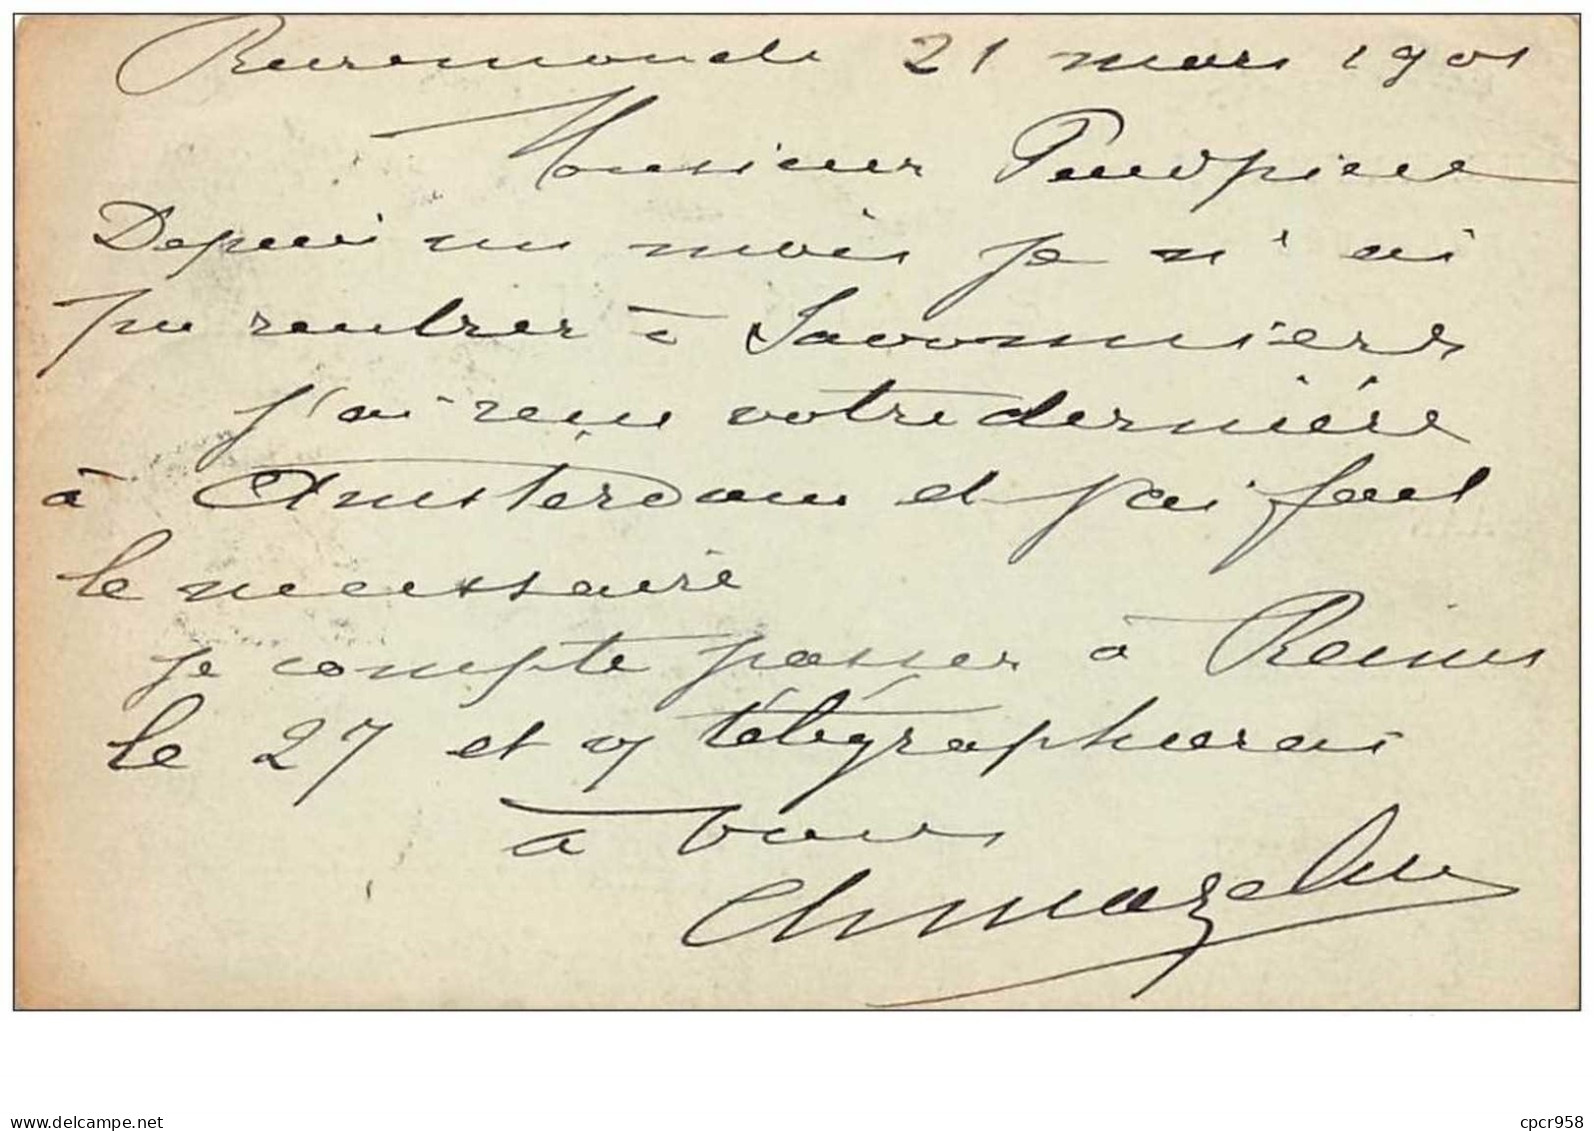 Ruremonde 21 mars 1901
Monsieur
Depuis un mois je n'ai
pu rentrer à Savonnières
j'ai reçu votre dernière
à Amsterdam et j'ai fait
le nécessaire
je compte passer à Reims
le 27 et y télégraphierai
à vous
delcampe.net
cpcr958